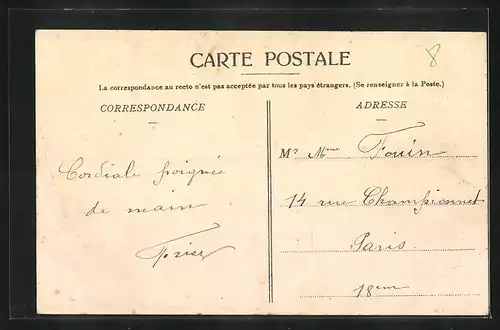 8
CARTE POSTALE
La correspondance au recto n'est pas acceptée par tous les pays étrangers. (Se renseigner à la Poste.)
CORRESPONDANCE
ADRESSE
Cordiale poignée
de main
Mr Mme Fouin
14 rue Championnet
Paris
18eme